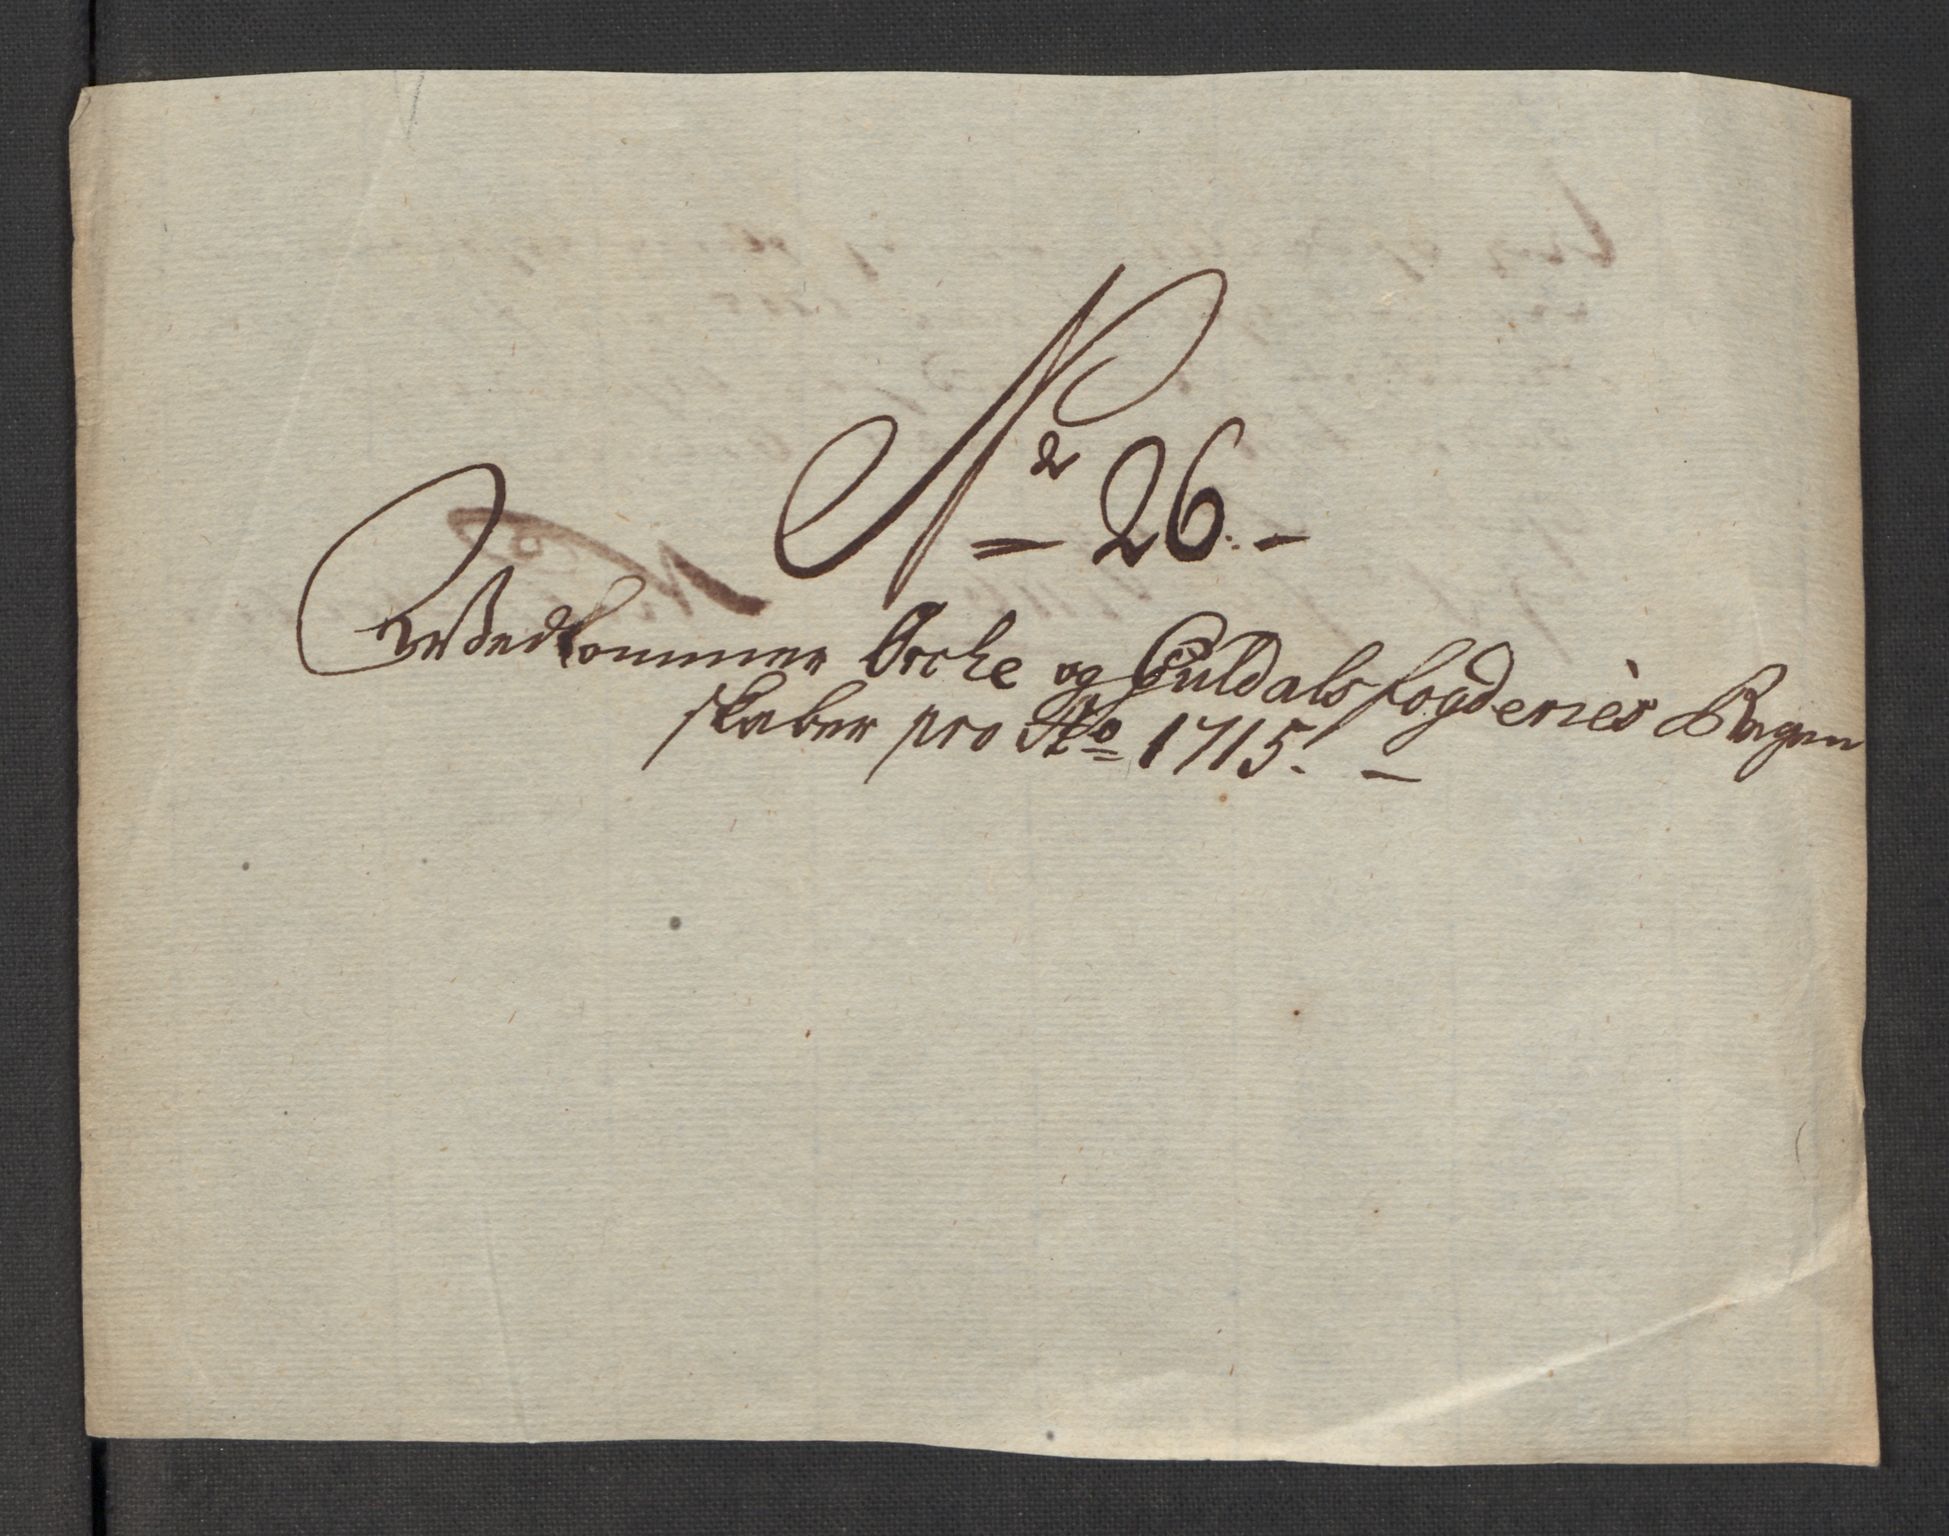 No 26.
Wedkommer Orche og Guldals fogderies Regen
skaber pro Ao 1715.